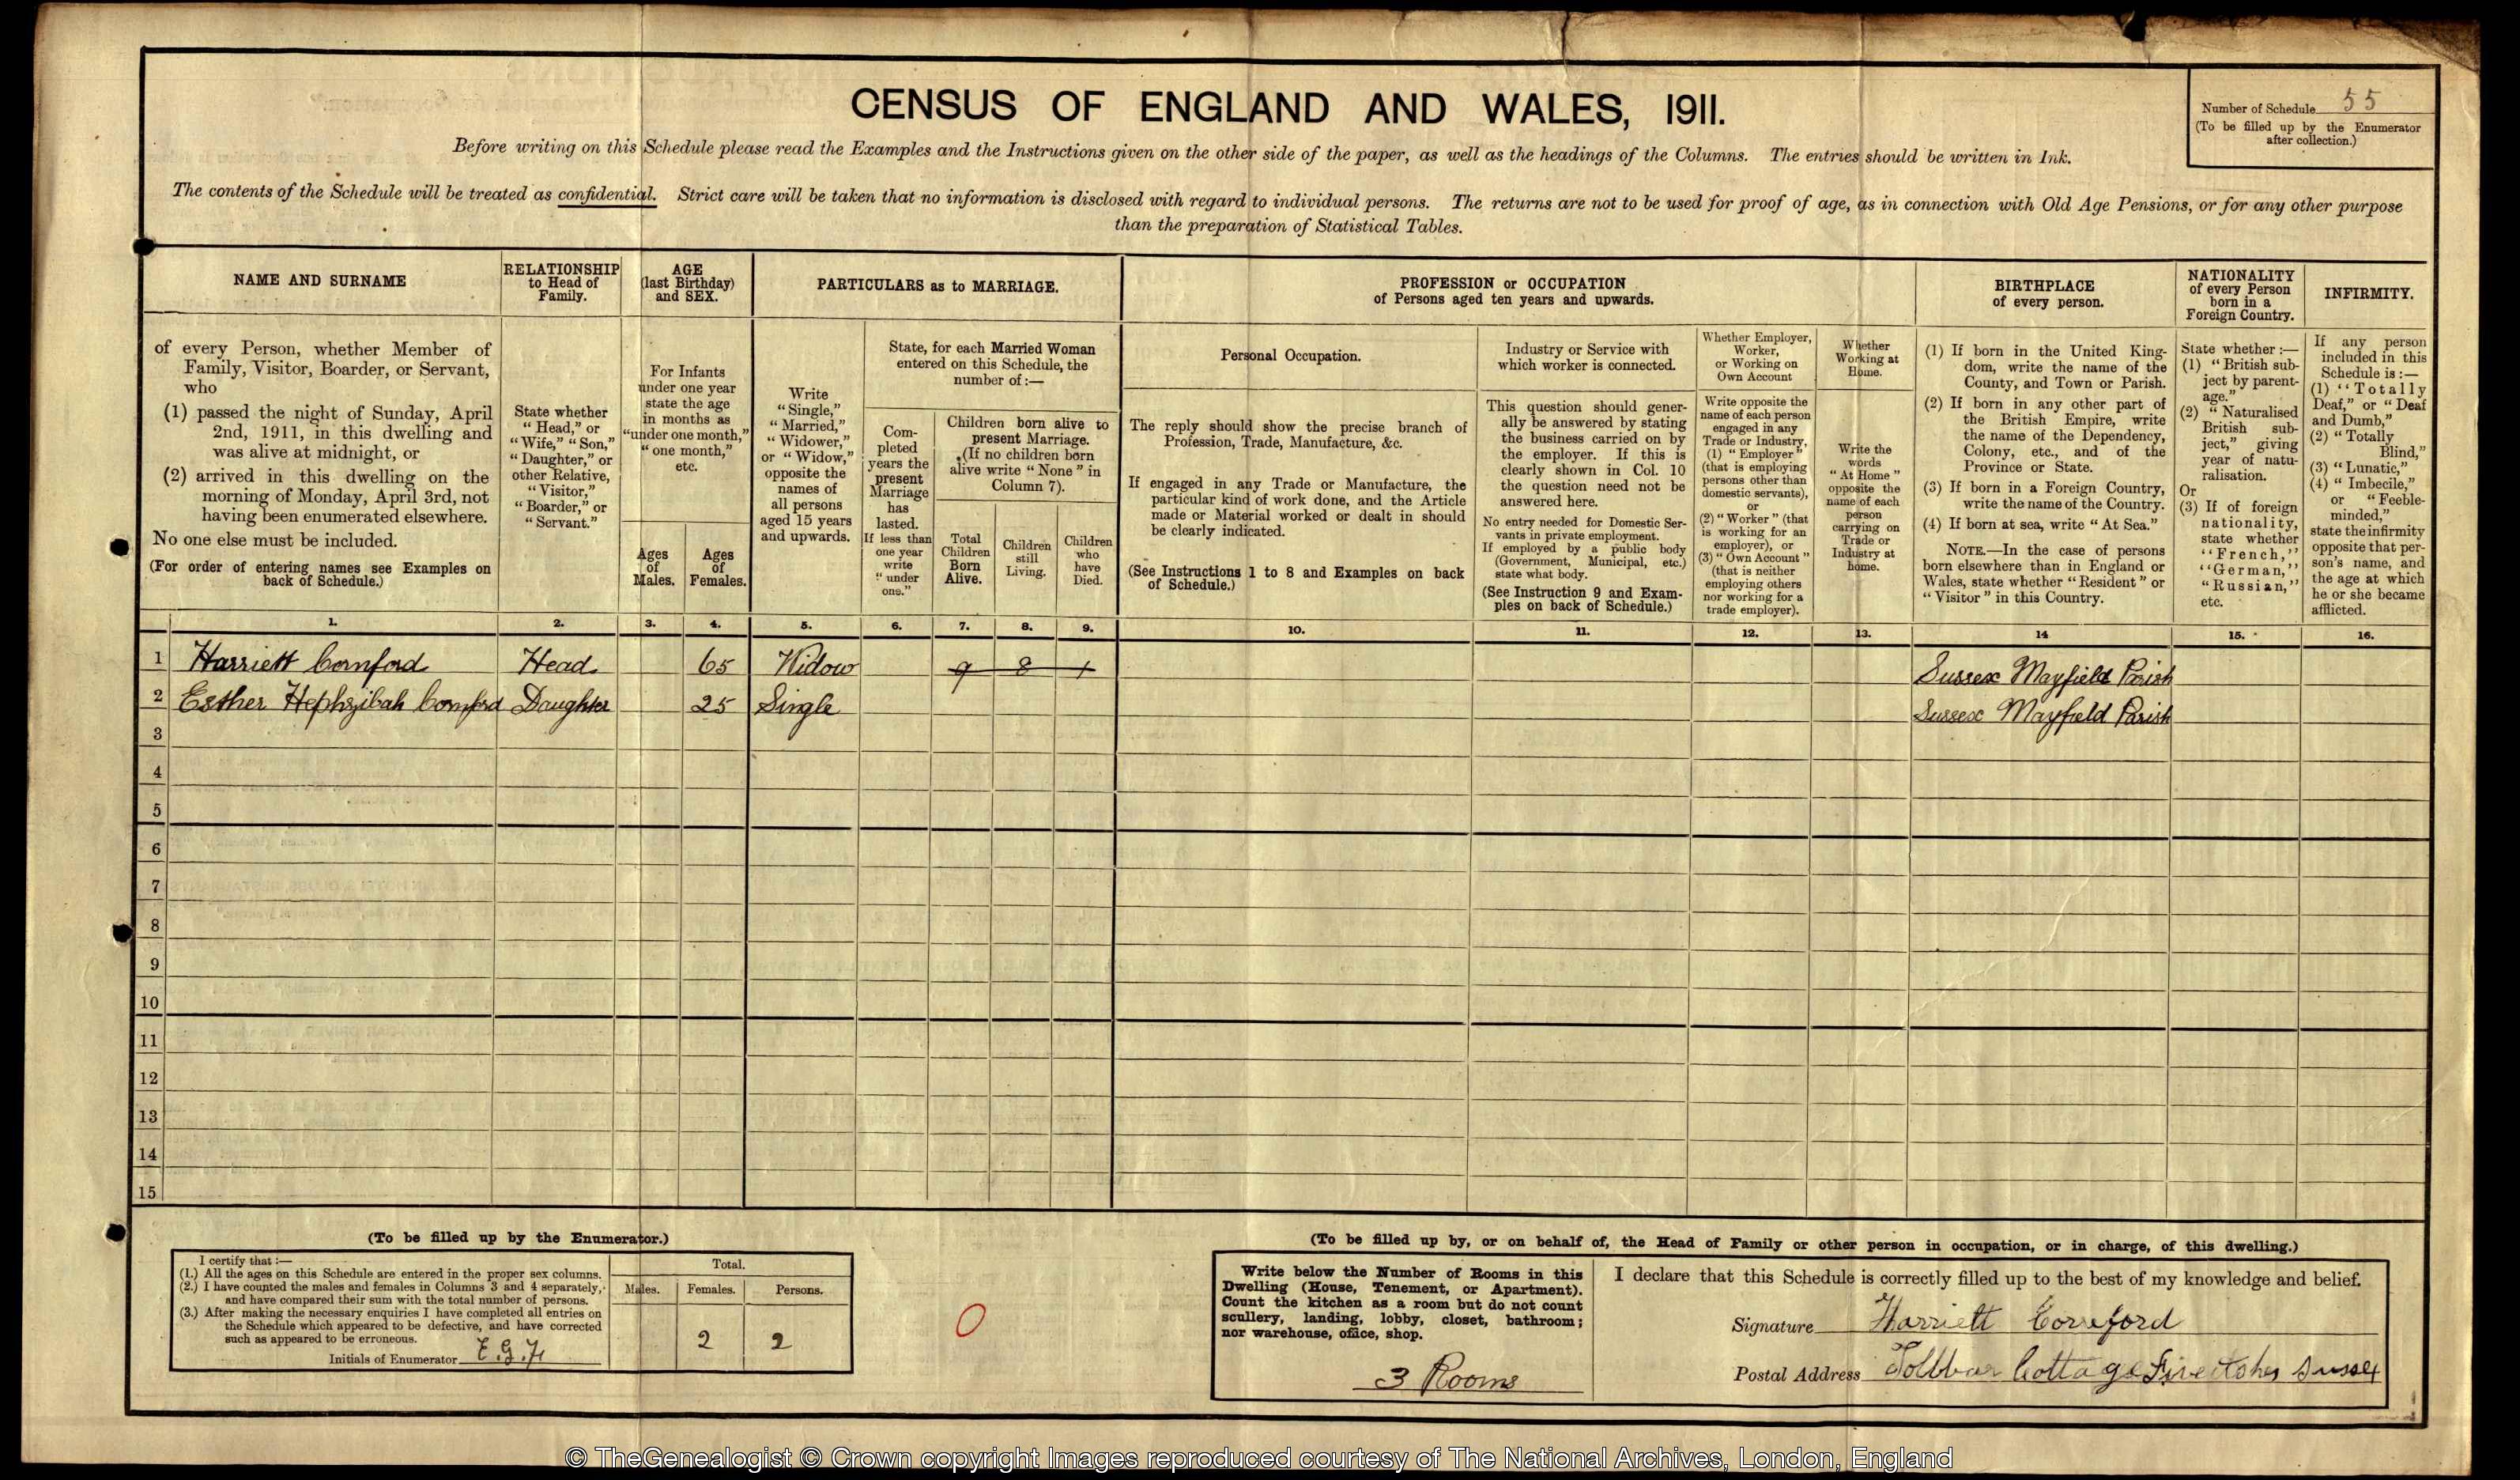 CENSUS OF ENGLAND AND WALES, 1911.
Number of Schedule 55
(To be filled up by the Enumerator
after collection.)
Before writing on this Schedule please read the Examples and the Instructions given on the other side of the paper, as well as the headings of the Columns. The entries should be written in Ink.
The contents of the Schedule will be treated as confidential. Strict care will be taken that no information is disclosed with regard to individual persons. The returns are not to be used for proof of age, as in connection with Old Age Pensions, or for any other purpose
than the preparation of Statistical Tables.
NAME AND SURNAME
of every Person, whether Member of
Family, Visitor, Boarder, or Servant,
who
(1) passed the night of Sunday, April
2nd, 1911, in this dwelling and
was alive at midnight, or
(2) arrived in this dwelling on the
morning of Monday, April 3rd, not
having been enumerated elsewhere.
No one else must be included.
(For order of entering names see Examples on
back of Schedule.)
RELATIONSHIP
to Head of
Family.
State whether
"Head," or
"Wife," "Son,"
"Daughter," or
other Relative,
"Visitor,"
"Boarder," or
"Servant."
AGE
(last Birthday)
and SEX.
For Infants
under one year
state the age
in months as
"under one month,"
"one month,"
etc.
Ages
of
Males.
Ages
of
Females.
PARTICULARS as to MARRIAGE.
Write
"Single,"
"Married,"
"Widower,"
or "Widow,"
opposite the
names of
all persons
aged 15 years
and upwards.
State, for each Married Woman
entered on this Schedule, the
number of:—
Com-
pleted
years the
present
Marriage
has
lasted.
If less than
one year
write
"under
one."
Children born alive to
present Marriage.
(If no children born
alive write "None" in
Column 7).
Total
Children
Born
Alive.
Children
still
Living.
Children
who
have
Died.
PROFESSION or OCCUPATION
of Persons aged ten years and upwards.
Personal Occupation.
The reply should show the precise branch of
Profession, Trade, Manufacture, &c.
If engaged in any Trade or Manufacture, the
particular kind of work done, and the Article
made or Material worked or dealt in should
be clearly indicated.
(See Instructions 1 to 8 and Examples on back
of Schedule.)
Industry or Service with
which worker is connected.
This question should gener-
ally be answered by stating
the business carried on by
the employer. If this is
clearly shown in Col. 10
the question need not be
answered here.
No entry needed for Domestic Ser-
vants in private employment.
If employed by a public body
(Government, Municipal, etc.)
state what body.
(See Instruction 9 and Exam-
ples on back of Schedule.)
Whether Employer,
Worker,
or Working on
Own Account
Write opposite the
name of each person
engaged in any
Trade or Industry,
(1) "Employer"
(that is employing
persons other than
domestic servants),
or
(2) "Worker" (that
is working for an
employer), or
(3) "Own Account"
(that is neither
employing others
nor working for a
trade employer).
Whether
Working at
Home.
Write the
words
"At Home"
opposite the
name of each
person
carrying on
Trade or
Industry at
home.
BIRTHPLACE
of every person.
(1) If born in the United King-
dom, write the name of the
County, and Town or Parish.
(2) If born in any other part of
the British Empire, write
the name of the Dependency,
Colony, etc., and of the
Province or State.
(3) If born in a Foreign Country,
write the name of the Country.
(4) If born at sea, write "At Sea."
NOTE.—In the case of persons
born elsewhere than in England or
Wales, state whether "Resident" or
"Visitor" in this Country.
NATIONALITY
of every Person
born in a
Foreign Country.
State whether:—
(1) "British sub-
ject by parent-
age."
(2) "Naturalised
British sub-
ject," giving
year of natu-
ralisation.
Or
(3) If of foreign
nationality,
state whether
"French,"
"German,"
"Russian,"
etc.
INFIRMITY.
If any person
included in this
Schedule is:—
(1) "Totally
Deaf," or "Deaf
and Dumb,"
(2) "Totally
Blind,"
(3) "Lunatic,"
(4) "Imbecile,"
or "Feeble-
minded,"
state the infirmity
opposite that per-
son's name, and
the age at which
he or she became
afflicted.
1. 2. 3. 4. 5. 6. 7. 8. 9. 10. 11. 12. 13. 14 15. 16.
1 Harriett Cornford Head 65 Widow 9 8 1 Sussex Mayfield Parish
2 Esther Hephzibah Cornford Daughter 25 Single Sussex Mayfield Parish
3
4
5
6
7
8
9
10
11
12
13
14
15
(To be filled up by the Enumerator.)
I certify that:—
(1.) All the ages on this Schedule are entered in the proper sex columns.
(2.) I have counted the males and females in Columns 3 and 4 separately,
and have compared their sum with the total number of persons.
(3.) After making the necessary enquiries I have completed all entries on
the Schedule which appeared to be defective, and have corrected
such as appeared to be erroneous.
Initials of Enumerator
Total.
Males. Females. Persons.
2 2
O
(To be filled up by, or on behalf of, the Head of Family or other person in occupation, or in charge, of this dwelling.)
Write below the Number of Rooms in this
Dwelling (House, Tenement, or Apartment).
Count the kitchen as a room but do not count
scullery, landing, lobby, closet, bathroom;
nor warehouse, office, shop.
3 Rooms
I declare that this Schedule is correctly filled up to the best of my knowledge and belief.
Signature Harriett Cornford
Postal Address Tollbar Cottage Five Ashes Sussex
© TheGenealogist © Crown copyright Images reproduced courtesy of The National Archives, London, England